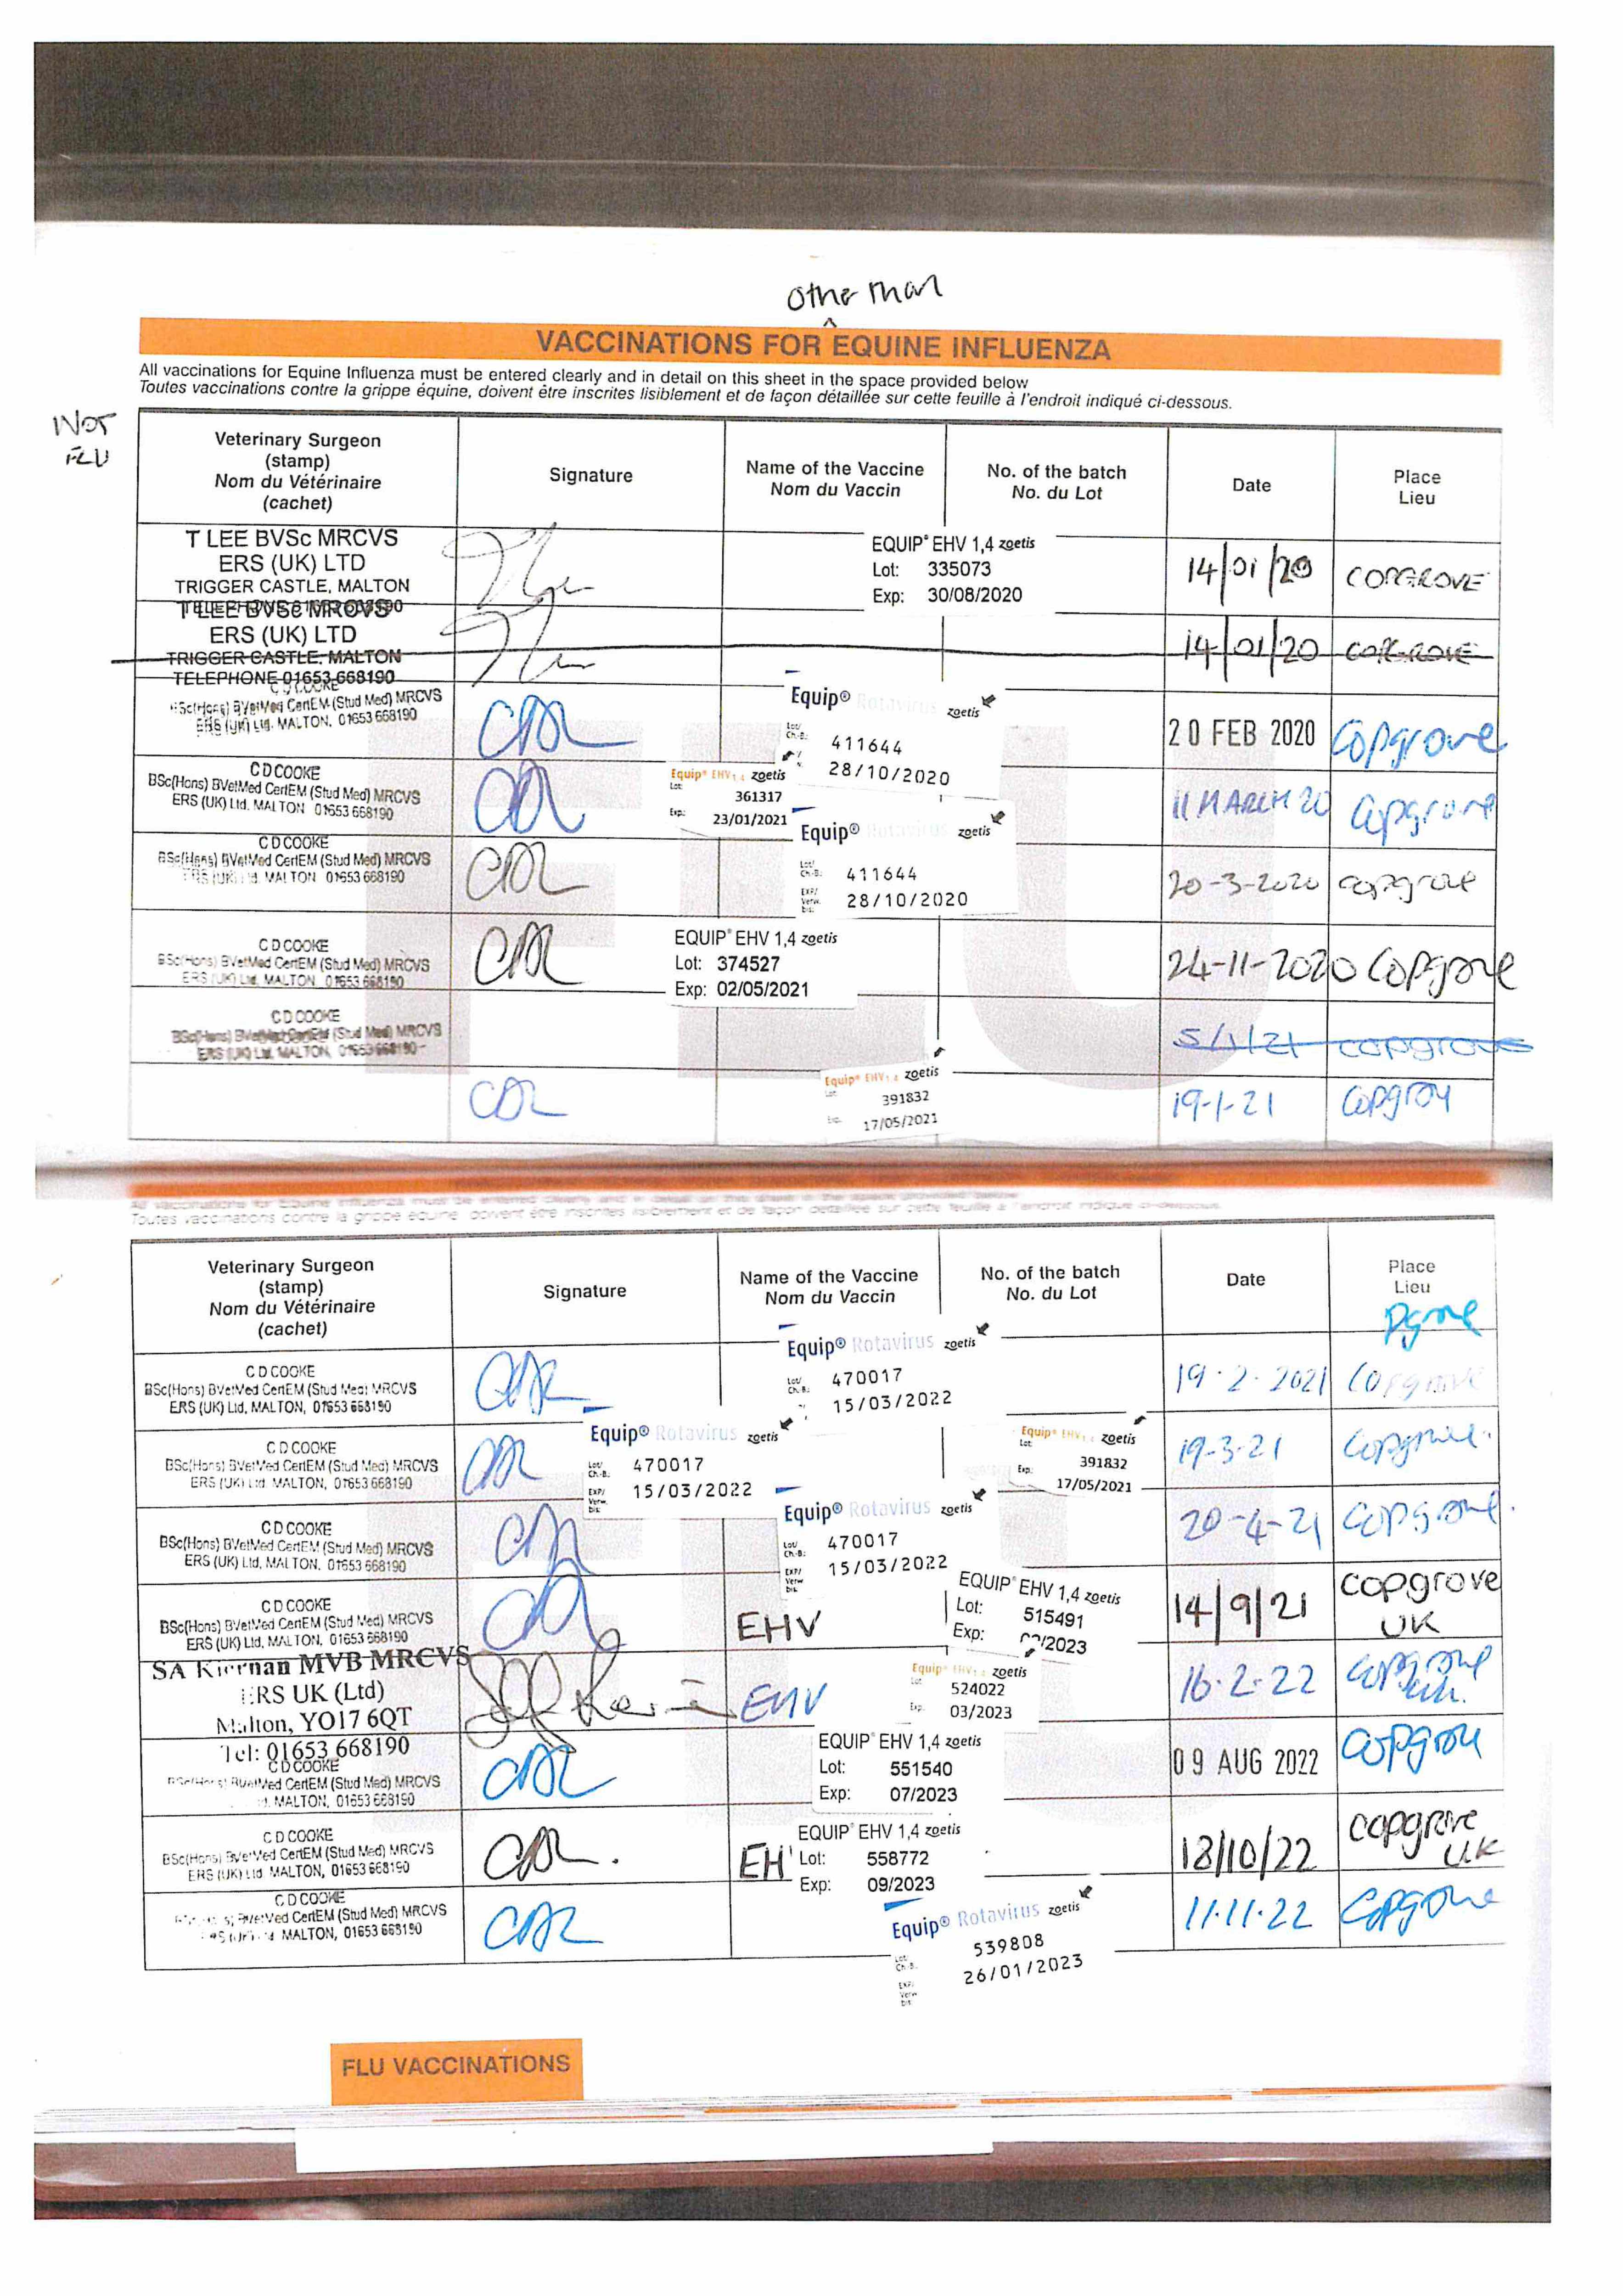 other than
^
VACCINATIONS FOR EQUINE INFLUENZA
All vaccinations for Equine Influenza must be entered clearly and in detail on this sheet in the space provided below
Toutes vaccinations contre la grippe équine, doivent être inscrites lisiblement et de façon détaillée sur cette feuille à l'endroit indiqué ci-dessous.
NOT
FLU
Veterinary Surgeon
(stamp)
Nom du Vétérinaire
(cachet)
Signature
Name of the Vaccine
Nom du Vaccin
No. of the batch
No. du Lot
Date
Place
Lieu
T LEE BVSc MRCVS
ERS (UK) LTD
TRIGGER CASTLE, MALTON
EQUIP® EHV 1,4 zoetis
Lot: 335073
Exp: 30/08/2020
14/01/20
COPGROVE
T LEE BVSc MRCVS
ERS (UK) LTD
TRIGGER CASTLE, MALTON
TELEPHONE 01653 668190
14/01/20
COPGROVE
C D COOKE
BSc(Hons) BVetMed CertEM (Stud Med) MRCVS
ERS (UK) Ltd. MALTON, 01653 668190
Equip® Rotavirus zoetis
Lot/
Ch.-B.:
411644
28/10/2020
20 FEB 2020
Copgrove
C D COOKE
BSc(Hons) BVetMed CertEM (Stud Med) MRCVS
ERS (UK) Ltd. MALTON 01653 668190
Equip® EHV 1,4 zoetis
Lot: 361317
Exp: 23/01/2021
11 MARCH 20
Copgrove
C D COOKE
BSc(Hons) BVetMed CertEM (Stud Med) MRCVS
ERS (UK) Ltd. MALTON 01653 668190
Equip® Rotavirus zoetis
Lot/
Ch.-B.:
411644
EXP/
Verw.
bis:
28/10/2020
20-3-2020
copgrove
C D COOKE
BSc(Hons) BVetMed CertEM (Stud Med) MRCVS
ERS (UK) Ltd, MALTON 01653 668190
EQUIP® EHV 1,4 zoetis
Lot: 374527
Exp: 02/05/2021
24-11-2020
Copgrove
C D COOKE
BSc(Hons) BVetMed CertEM (Stud Med) MRCVS
ERS (UK) Ltd, MALTON, 01653 668190
5/1/21
copgrove
Equip® EHV 1,4 zoetis
Lot: 391832
Exp: 17/05/2021
19-1-21
Copgrove
All vaccinations for Equine Influenza must be entered clearly and in detail on this sheet in the space provided below
Toutes vaccinations contre la grippe équine, doivent être inscrites lisiblement et de façon détaillée sur cette feuille à l'endroit indiqué ci-dessous.
Veterinary Surgeon
(stamp)
Nom du Vétérinaire
(cachet)
Signature
Name of the Vaccine
Nom du Vaccin
No. of the batch
No. du Lot
Date
Place
Lieu
pgrove
C D COOKE
BSc(Hons) BVetMed CertEM (Stud Med) MRCVS
ERS (UK) Ltd, MALTON, 01653 668190
Equip® Rotavirus zoetis
Lot/
Ch.-B.:
470017
15/03/2022
19.2.2021
Copgrove
C D COOKE
BSc(Hons) BVetMed CertEM (Stud Med) MRCVS
ERS (UK) Ltd. MALTON, 01653 668190
Equip® Rotavirus zoetis
Lot/
Ch.-B.:
470017
EXP/
Verw.
bis:
15/03/2022
Equip® EHV 1,4 zoetis
Lot: 391832
Exp: 17/05/2021
19-3-21
Copgrove.
C D COOKE
BSc(Hons) BVetMed CertEM (Stud Med) MRCVS
ERS (UK) Ltd, MALTON, 01653 668190
Equip® Rotavirus zoetis
Lot/
Ch.-B.:
470017
EXP/
Verw.
bis:
15/03/2022
20-4-21
Copgrove.
C D COOKE
BSc(Hons) BVetMed CertEM (Stud Med) MRCVS
ERS (UK) Ltd, MALTON, 01653 668190
EHV
EQUIP® EHV 1,4 zoetis
Lot: 515491
Exp: /2023
14/9/21
copgrove
UK
SA Kiernan MVB MRCVS
ERS UK (Ltd)
Malton, YO17 6QT
Tel: 01653 668190
EHV
Equip® EHV 1,4 zoetis
Lot: 524022
Exp: 03/2023
16.2.22
Copgrove
UK.
C D COOKE
BSc(Hons) BVetMed CertEM (Stud Med) MRCVS
MALTON, 01653 668190
EQUIP® EHV 1,4 zoetis
Lot: 551540
Exp: 07/2023
09 AUG 2022
Copgrove
C D COOKE
BSc(Hons) BVetMed CertEM (Stud Med) MRCVS
ERS (UK) Ltd MALTON, 01653 668190
EH
EQUIP® EHV 1,4 zoetis
Lot: 558772
Exp: 09/2023
18/10/22
copgrove
UK
C D COOKE
BVetMed CertEM (Stud Med) MRCVS
MALTON, 01653 668190
Equip® Rotavirus zoetis
Lot/
Ch.-B.
539808
EXP/
Verw.
bis
26/01/2023
11.11.22
Copgrove
FLU VACCINATIONS